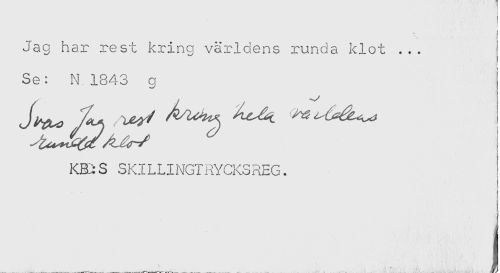 Jag har rest kring världens runda klot ...
Se: N 1843 g
Svas Jag rest kring hela världens
runda klot
KB:S SKILLINGTRYCKSREG.